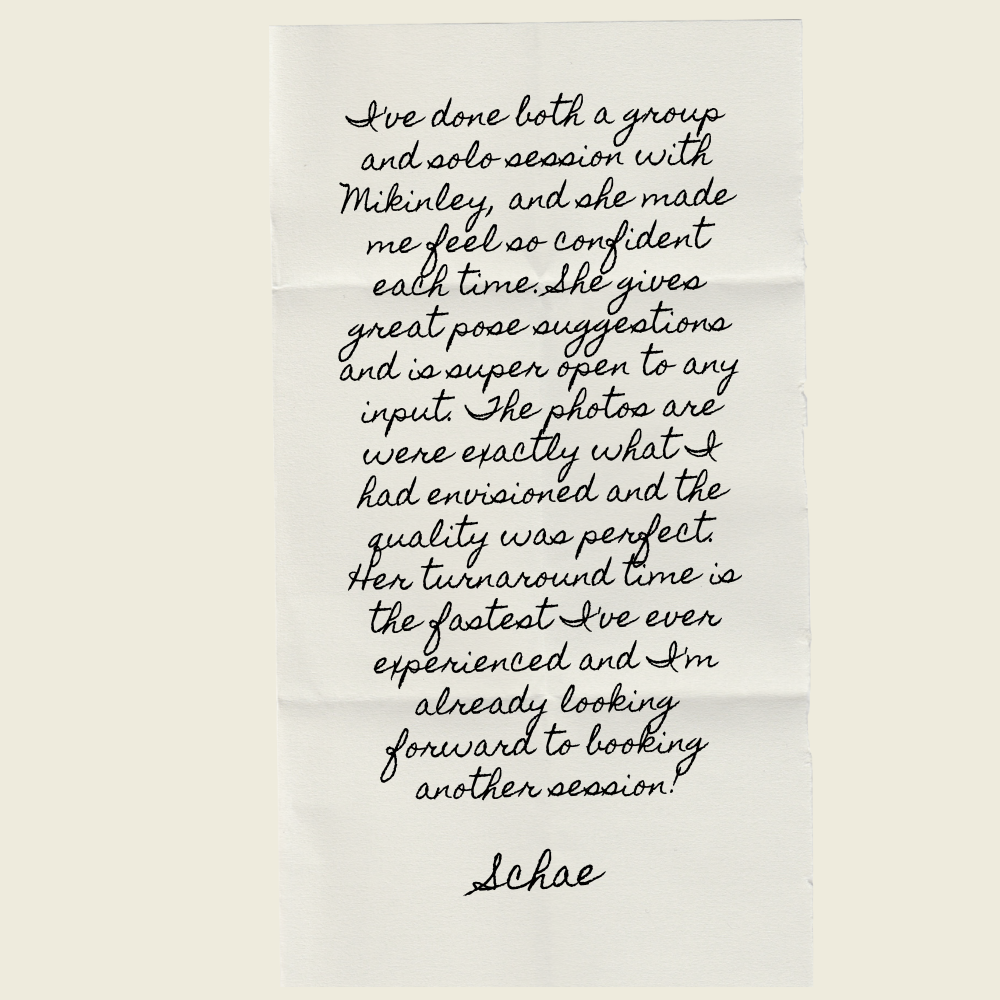 I've done both a group
and solo session with
Mikinley, and she made
me feel so confident
each time. She gives
great pose suggestions
and is super open to any
input. The photos are
were exactly what I
had envisioned and the
quality was perfect.
Her turnaround time is
the fastest I've ever
experienced and I'm
already looking
forward to booking
another session!
Schae